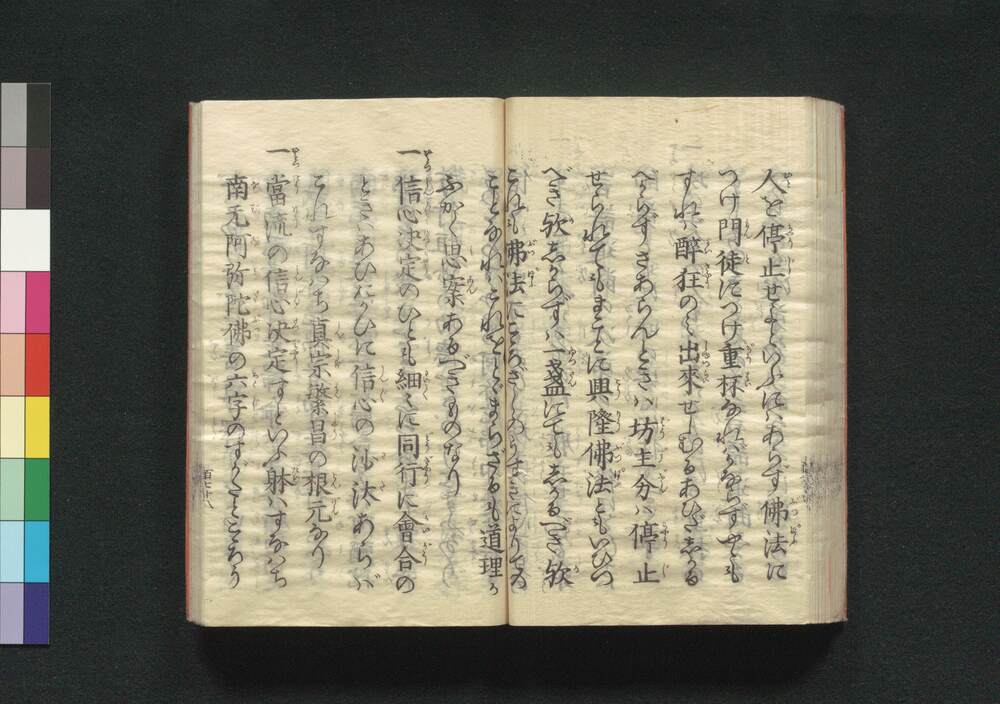 人を停止せよといふにハあらず佛法に
つけ門徒につけ重杯なれハかならずやゝも
すれハ醉狂のミ出來せしむるあひだしかる
べからずさあらんときハ坊主分ハ停止
せられてもまことに興隆佛法ともいひつ
べき歟しからずハ一盞にてもしかるべき歟
これも佛法にこゝろざしのうすきによりての
ことなれハこれをとゞまらざるも道理か
ふかく思案あるべきものなり
一信心決定のひとも細々に同行に會合の
ときハあひたがひに信心の沙汰あらバ
これすなハち真宗繁昌の根元なり
一當流の信心決定すといふ躰ハすなハち
南无阿弥陀佛の六字のすがたとこゝろう